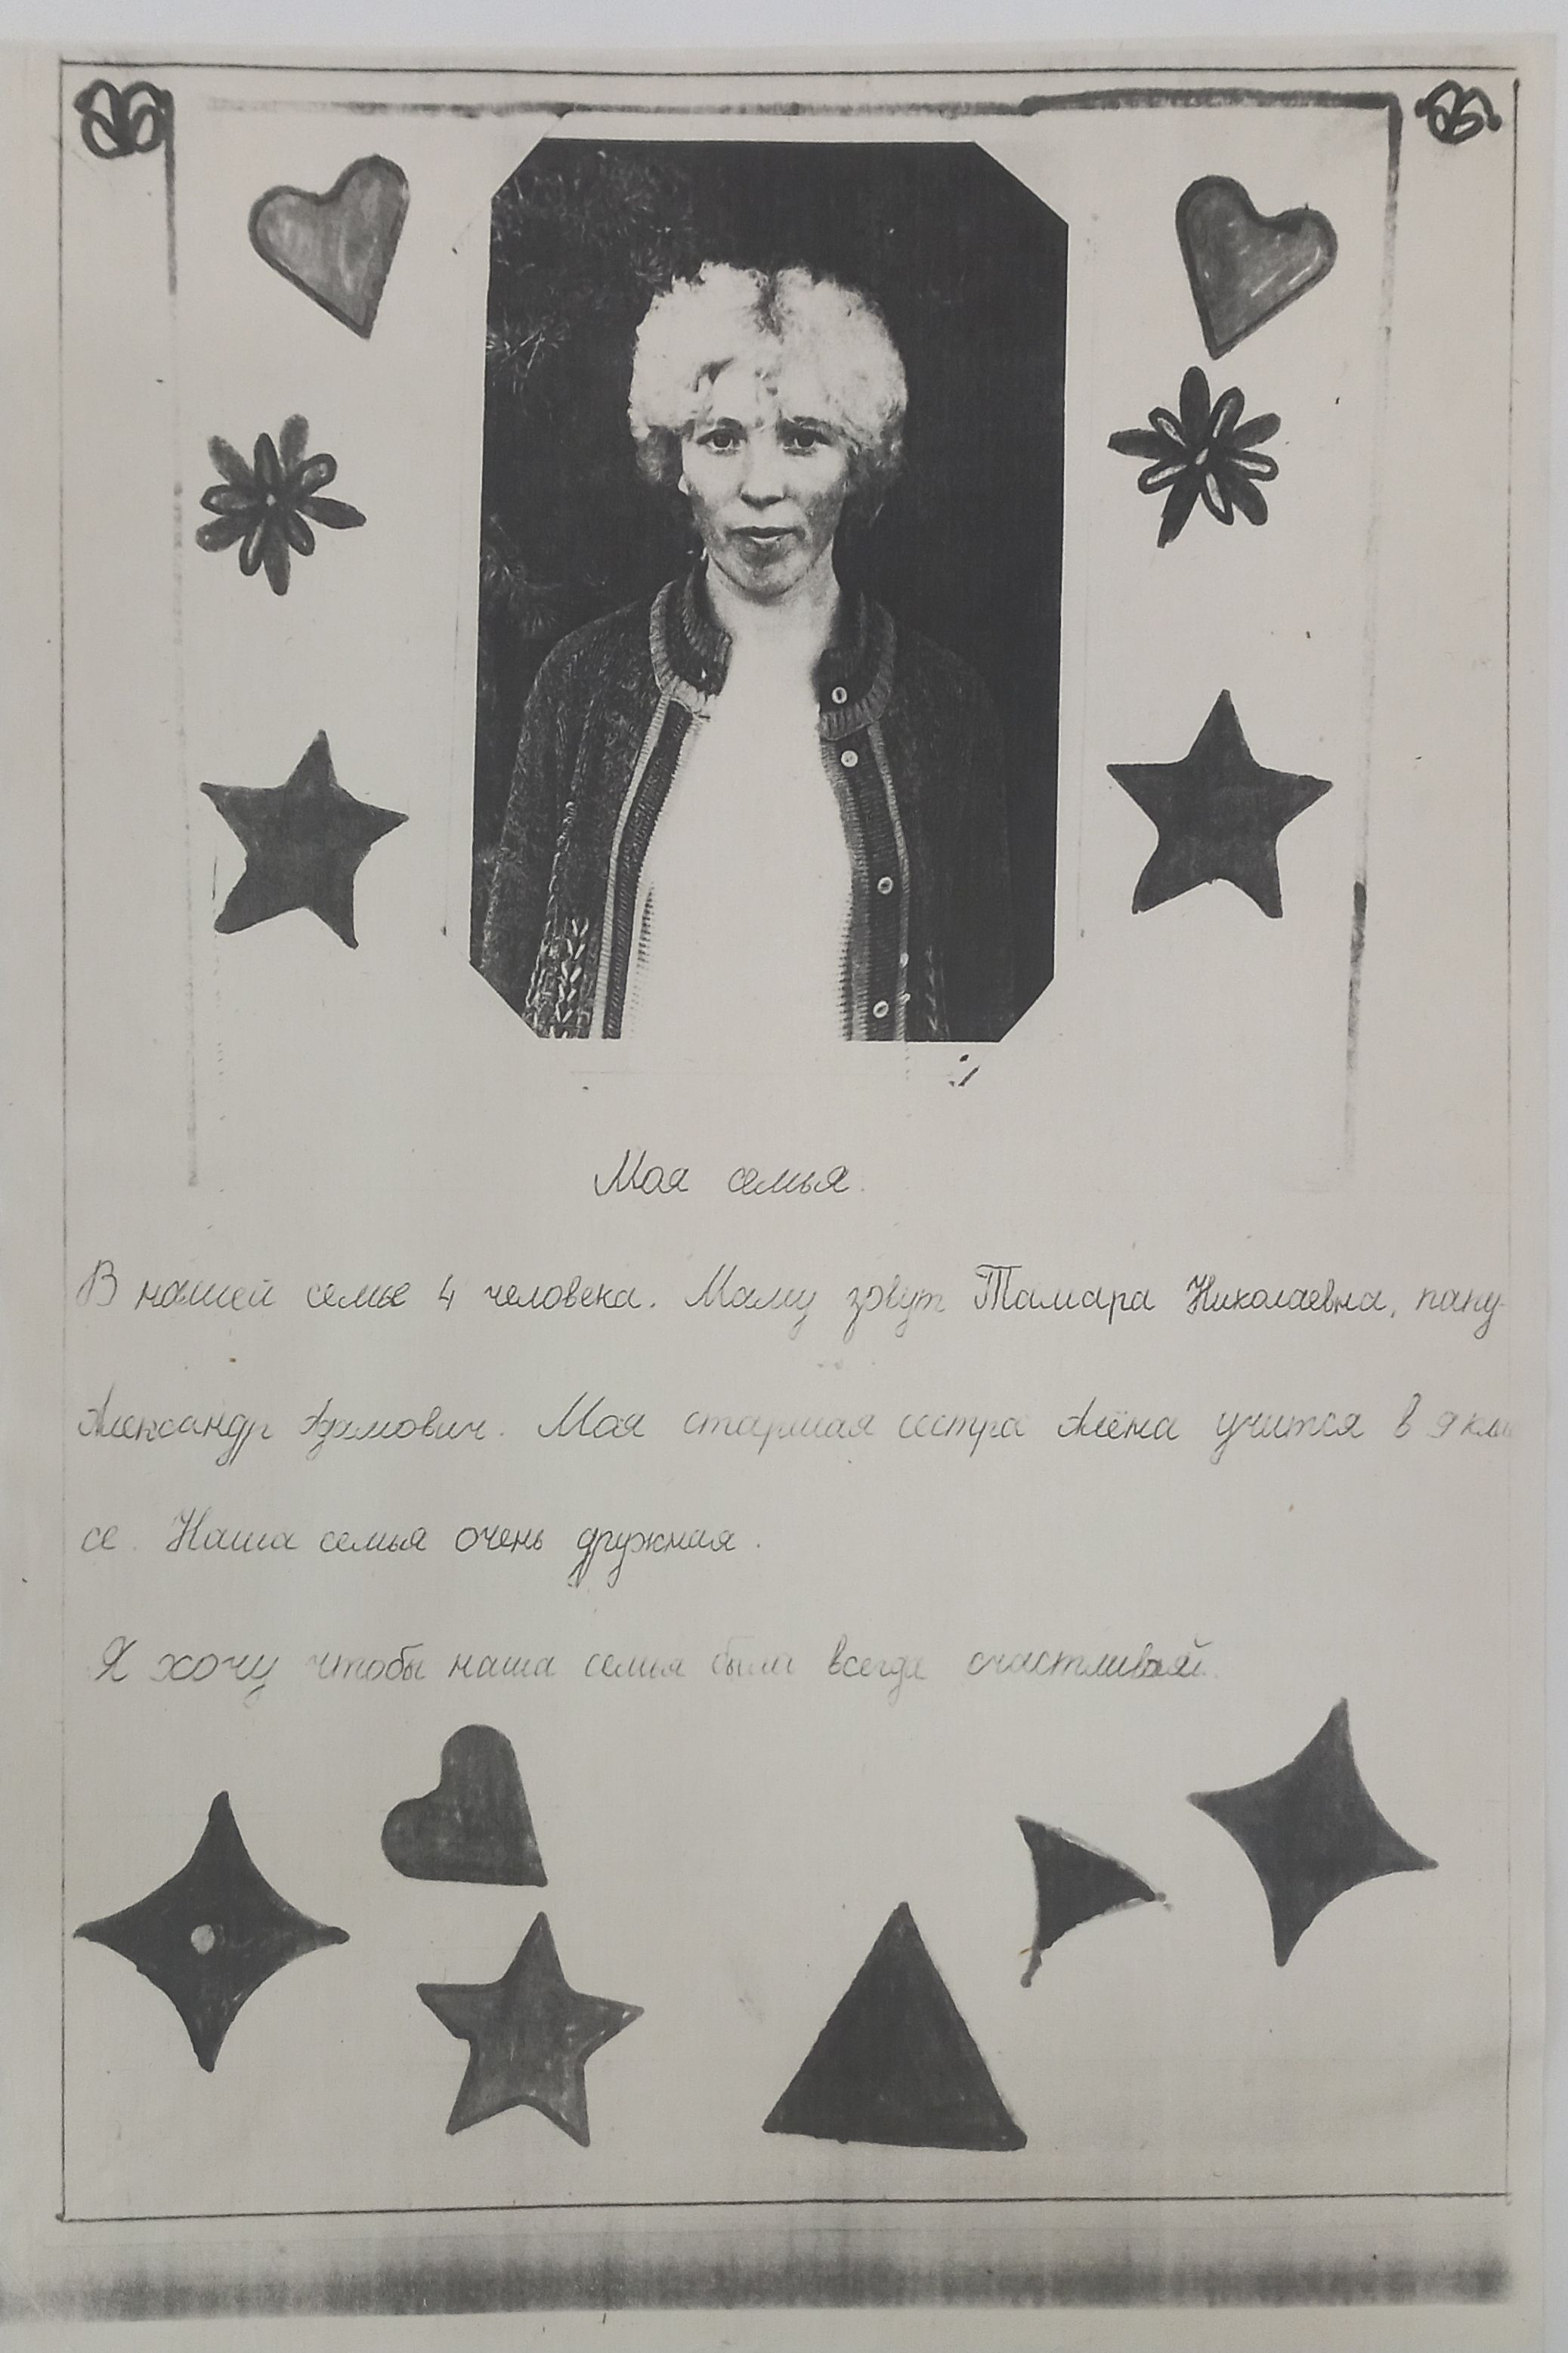 Моя семья.
В нашей семье 4 человека. Маму зовут Тамара Николаевна, папу-
Александр Адамович. Моя старшая сестра Алёна учится в 9 клас
се. Наша семья очень дружная.
Я хочу чтобы наша семья была всегда счастливой.